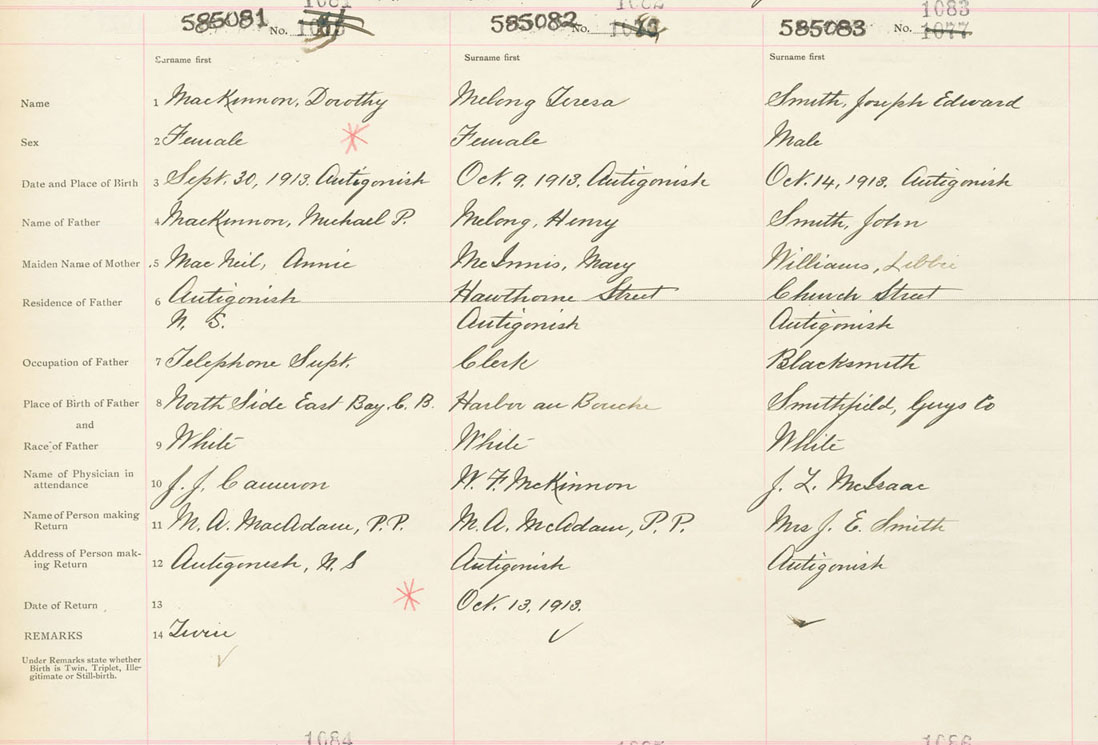 1081 1082 1083
585081 No. 585082 No. 585083 No. 1077
Surname first Surname first Surname first
Name 1 MacKinnon, Dorothy Melong Teresa Smith, Joseph Edward
Sex 2 Female Female Male
Date and Place of Birth 3 Sept. 30, 1913. Antigonish Oct. 9. 1913. Antigonish Oct. 14, 1913. Antigonish
Name of Father 4 MacKinnon, Michael P. Melong, Henry Smith, John
Maiden Name of Mother 5 Mac Neil, Annie McInnis, Mary Williams, Libbie
Residence of Father 6 Antigonish Hawthorne Street Church Street
N. S. Antigonish Antigonish
Occupation of Father 7 Telephone Supt. Clerk Blacksmith
Place of Birth of Father 8 North Side East Bay. C. B. Harbor au Bouche Smithfield, Guys Co
and
Race of Father 9 White White White
Name of Physician in
attendance 10 J. J. Cameron W. F. McKinnon J. L. McIsaac
Name of Person making
Return 11 M. A. MacAdam, P.P. M. A. McAdam, P. P. Mrs J. E. Smith
Address of Person mak-
ing Return 12 Antigonesh, N. S Antigonish Antigonish
Date of Return 13 Oct. 13, 1913.
REMARKS 14 Twin
Under Remarks state whether
Birth is Twin, Triplet, Ille-
gitimate or Still-birth.
1084 1086